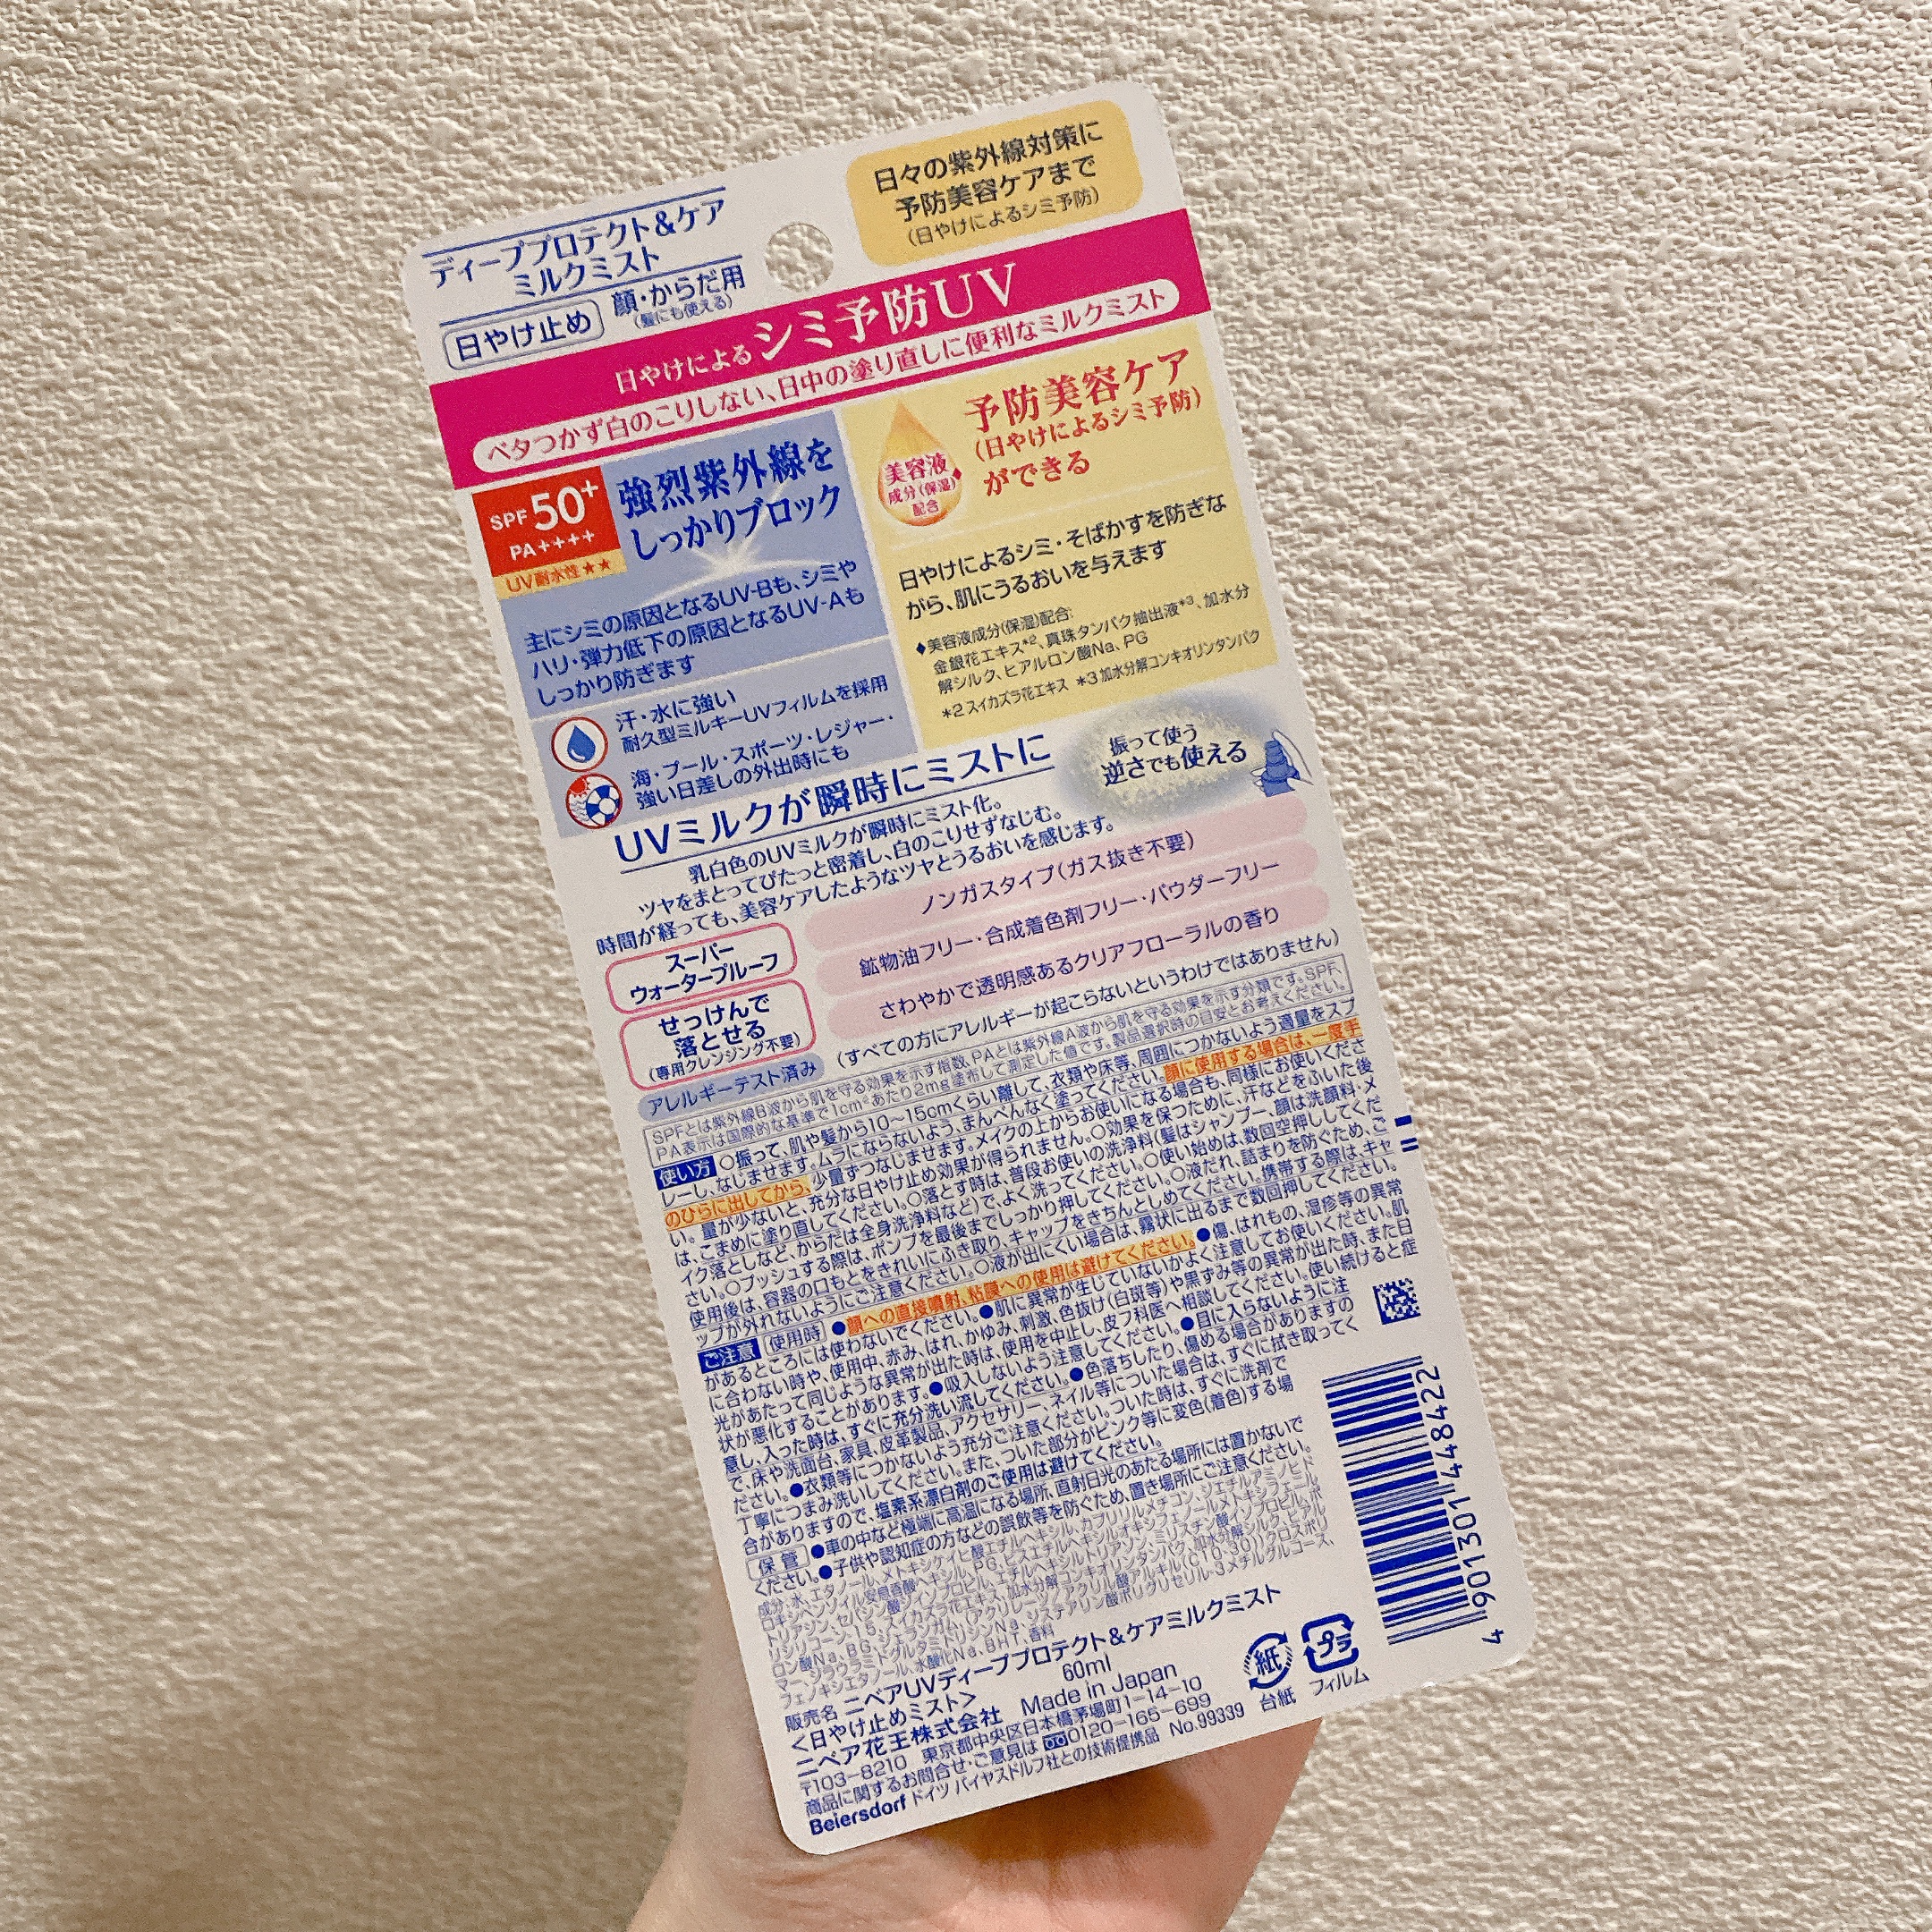 ディーププロテクト&ケア
ミルクミスト
日やけ止め
顔・からだ用
(髪にも使える)
日々の紫外線対策に
予防美容ケアまで
(日やけによるシミ予防)
日やけによるシミ予防UV
ベタつかず白のこりしない、日中の塗り直しに便利なミルクミスト
SPF50+
PA++++
UV耐水性★★
強烈紫外線を
しっかりブロック
主にシミの原因となるUV-Bも、シミや
ハリ・弾力低下の原因となるUV-Aも
しっかり防ぎます
汗・水に強い
耐久型ミルキーUVフィルムを採用
海・プール・スポーツ・レジャー・
強い日差しの外出時にも
美容液
成分(保湿)◆
配合
予防美容ケア
(日やけによるシミ予防)
ができる
日やけによるシミ・そばかすを防ぎな
がら、肌にうるおいを与えます
◆美容液成分(保湿)配合:
金銀花エキス*2、真珠タンパク抽出液*3、加水分
解シルク、ヒアルロン酸Na、PG
*2 スイカズラ花エキス *3 加水分解コンキオリンタンパク
UVミルクが瞬時にミストに
振って使う
逆さでも使える
乳白色のUVミルクが瞬時にミスト化。
ツヤをまとってぴたっと密着し、白のこりせずなじむ。
時間が経っても、美容ケアしたようなツヤとうるおいを感じます。
スーパー
ウォータープルーフ
せっけんで
落とせる
(専用クレンジング不要)
ノンガスタイプ(ガス抜き不要)
鉱物油フリー・合成着色剤フリー・パウダーフリー
さわやかで透明感あるクリアフローラルの香り
アレルギーテスト済み
(すべての方にアレルギーが起こらないというわけではありません)
SPFとは紫外線B波から肌を守る効果を示す指数、PAとは紫外線A波から肌を守る効果を示す分類です。SPF、
PA表示は国際的な基準で1cm²あたり2mg塗布して測定した値です。製品選択時の目安とお考えください。
使い方 ○振って、肌や髪から10～15cmくらい離して、衣類や床等、周囲につかないよう適量をスプ
レーし、なじませます。ムラにならないよう、まんべんなく塗ってください。顔に使用する場合は、一度手
のひらに出してから、少量ずつなじませます。メイクの上からお使いになる場合も、同様にお使いくださ
い。量が少ないと、充分な日やけ止め効果が得られません。○効果を保つために、汗などをふいた後
は、こまめに塗り直してください。○落とす時は、普段お使いの洗浄料(髪はシャンプー、顔は洗顔料・メ
イク落としなど、からだは全身洗浄料など)で、よく洗ってください。○使い始めは、数回空押ししてくだ
さい。○プッシュする際は、ポンプを最後までしっかり押してください。○液だれ、詰まりを防ぐため、ご
使用後は、容器の口もとをきれいにふき取り、キャップをきちんとしめてください。携帯する際は、キャ
ップが外れないようにご注意ください。○液が出にくい場合は、霧状に出るまで数回押してください。
ご注意 使用時 ●顔への直接噴射、粘膜への使用は避けてください。●傷、はれもの、湿疹等の異常
があるところには使わないでください。●肌に異常が生じていないかよく注意してお使いください。肌
に合わない時や、使用中、赤み、はれ、かゆみ、刺激、色抜け(白斑等)や黒ずみ等の異常が出た時、また日
光があたって同じような異常が出た時は、使用を中止し、皮フ科医へ相談してください。使い続けると症
状が悪化することがあります。●吸入しないよう注意してください。●目に入らないように注
意し、入った時は、すぐに充分洗い流してください。●色落ちしたり、傷める場合がありますの
で、床や洗面台、家具、皮革製品、アクセサリー、ネイル等についた場合は、すぐに拭き取ってく
ださい。●衣類等につかないよう充分ご注意ください。ついた時は、すぐに洗剤で
丁寧につまみ洗いしてください。また、ついた部分がピンク等に変色(着色)する場
合がありますので、塩素系漂白剤のご使用は避けてください。
保管 ●車の中など極端に高温になる場所、直射日光のあたる場所には置かないで
ください。●子供や認知症の方などの誤飲等を防ぐため、置き場所にご注意ください。
成分:水、エタノール、メトキシケイヒ酸エチルヘキシル、カプリリルメチコン、ジエチルアミノヒド
ロキシベンゾイル安息香酸ヘキシル、PG、ビスエチルヘキシルオキシフェノールメトキシフェニル
トリアジン、セバシン酸ジイソプロピル、エチルヘキシルトリアゾン、ミリスチン酸イソプロピル、
フェノキシエタノール、水酸化Na、BHT、香料
販売名 ニベアUVディーププロテクト&ケアミルクミスト
<日やけ止めミスト>
60ml
ニベア花王株式会社 Made in Japan
〒103-8210 東京都中央区日本橋茅場町1-14-10
商品に関するお問合せ・ご意見は 0120-165-699
Beiersdorf ドイツ バイヤスドルフ社との技術提携品 No.99339
紙
台紙
プラ
フィルム
4 901301 448422